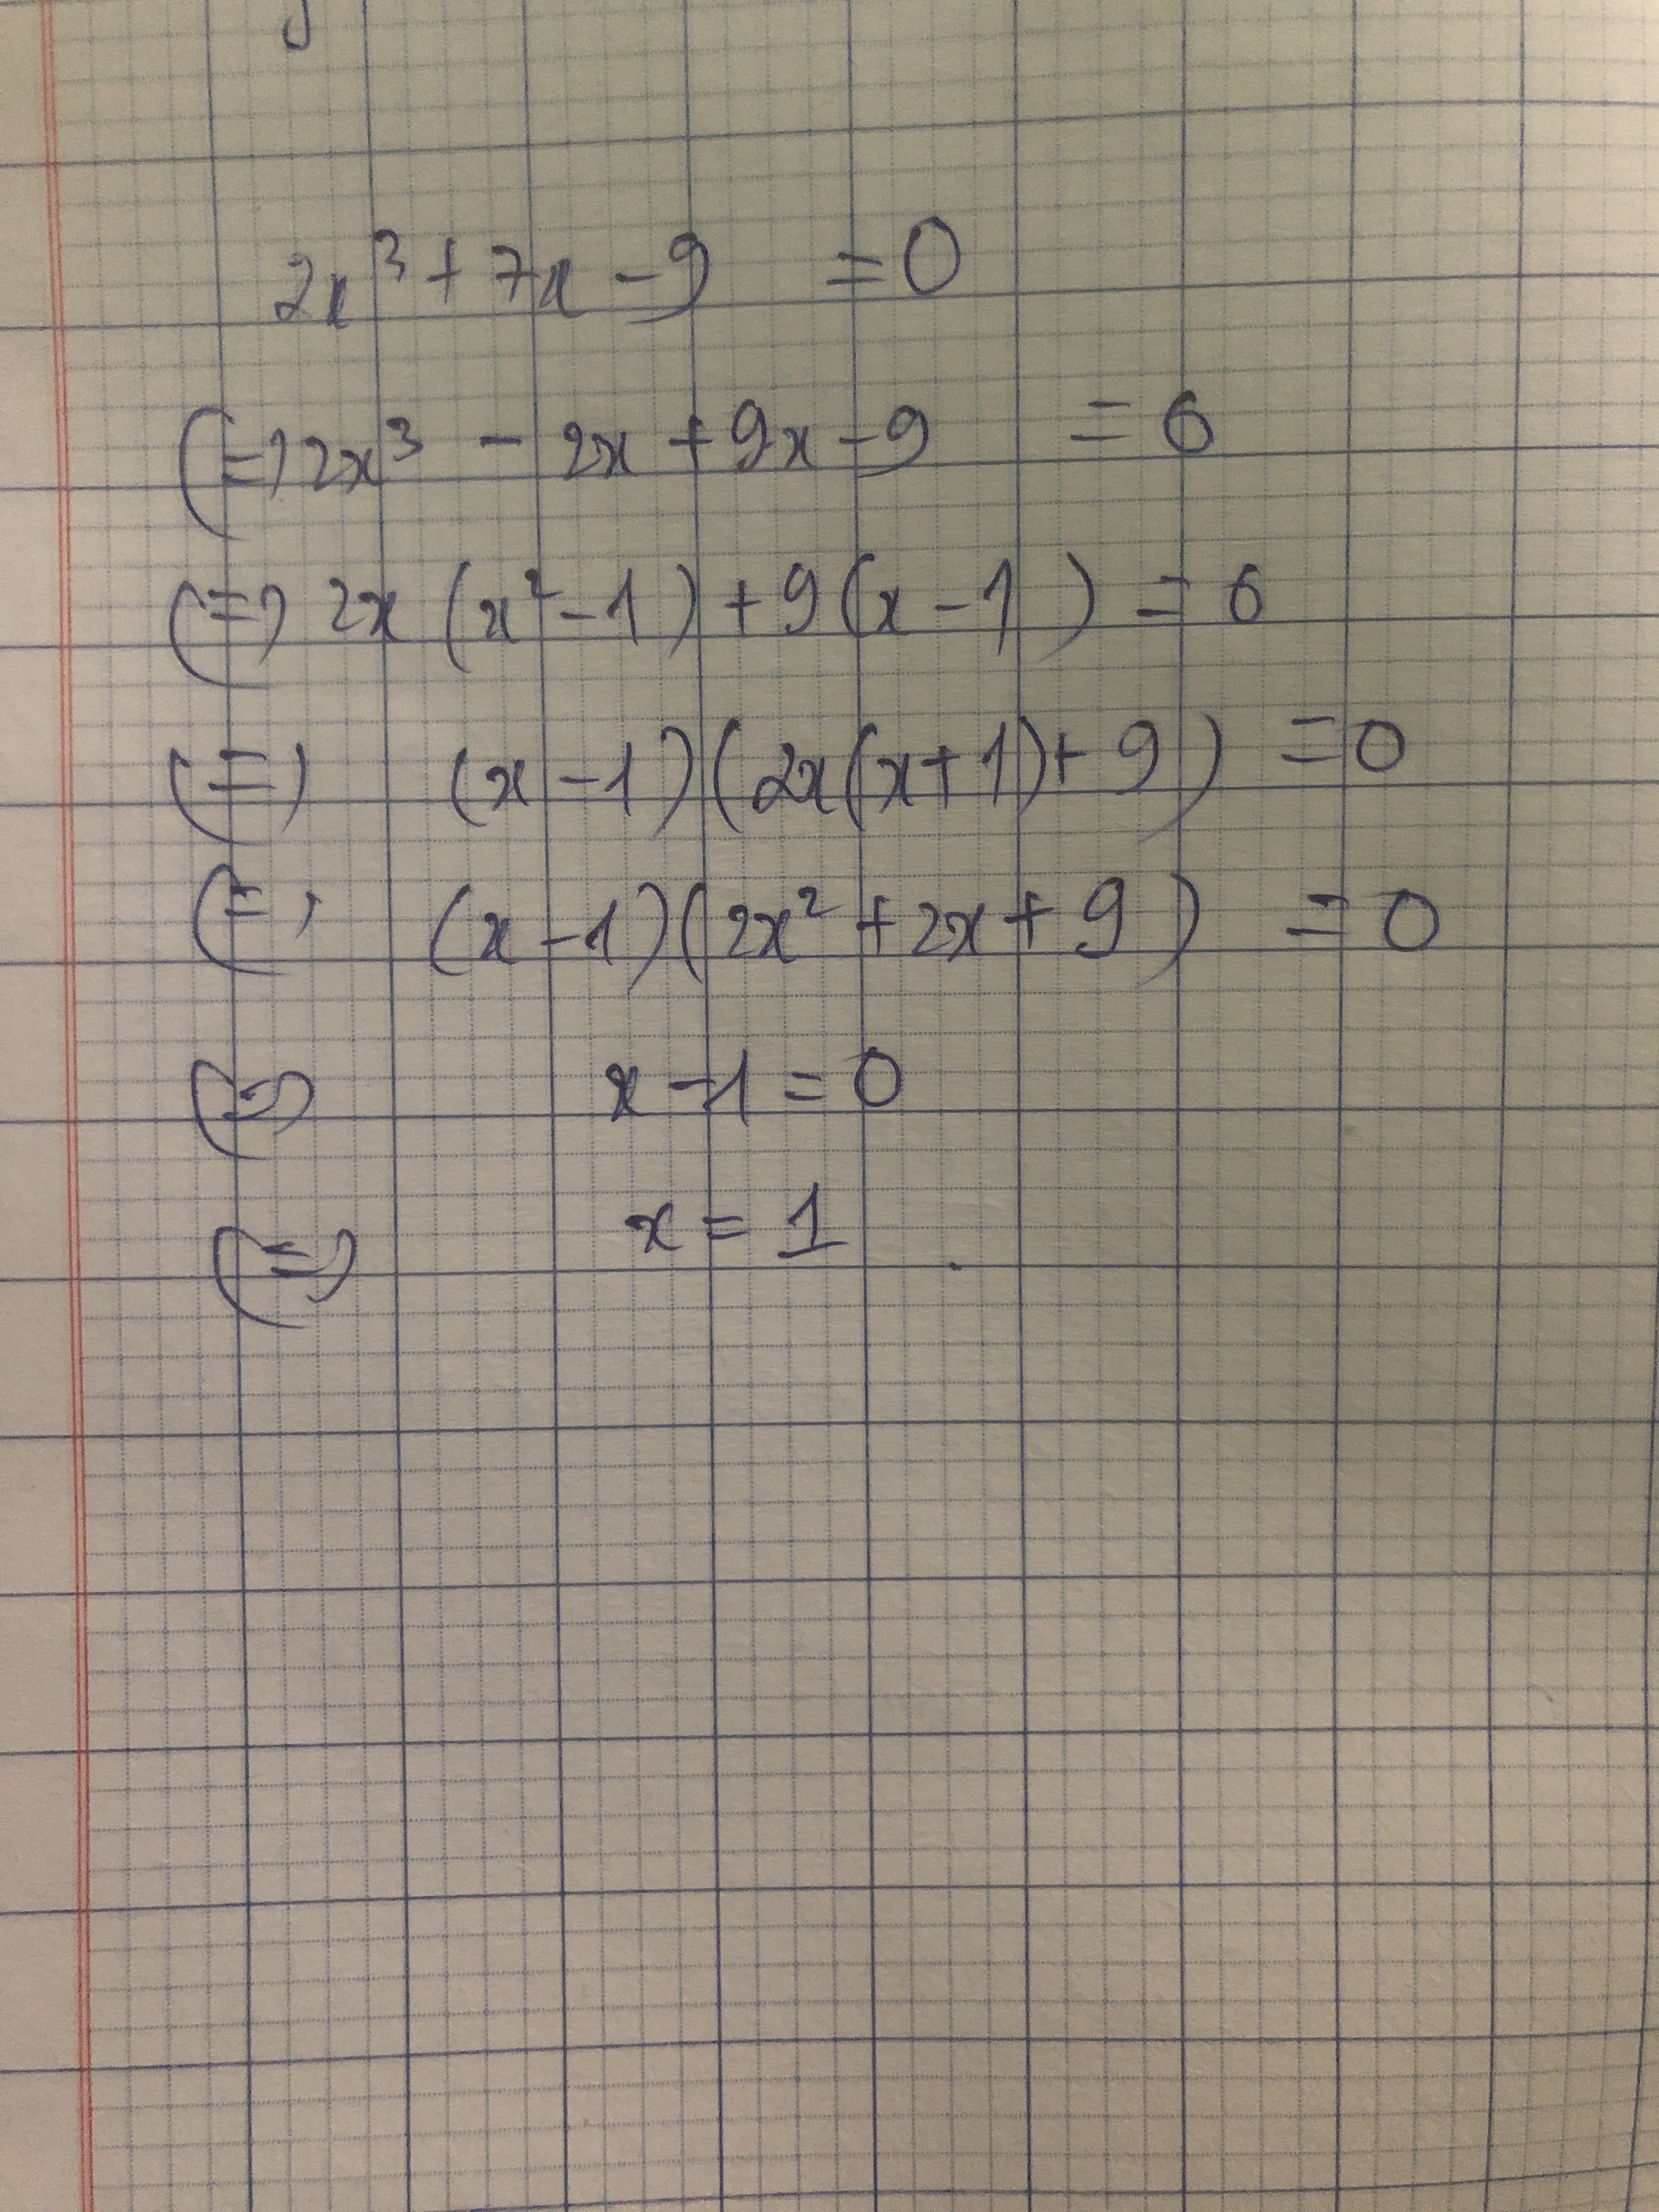 2x³ + 7x - 9 = 0
(=) 2x³ - 2x + 9x - 9 = 0
(=) 2x (x² - 1) + 9(x - 1) = 0
(=) (x - 1)(2x(x + 1) + 9) = 0
(=) (x - 1)(2x² + 2x + 9) = 0
(=) x - 1 = 0
(=) x = 1